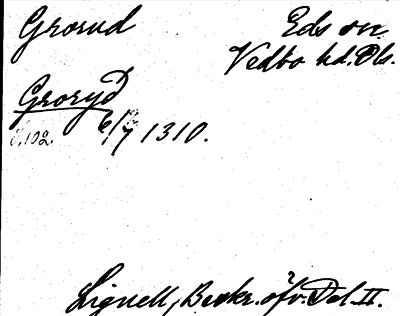 Grorud Eds sn
Vedbo hd. Dls.
Groryd
6/7 1310.
Lignell, Beskr. öfv. Dal. II.